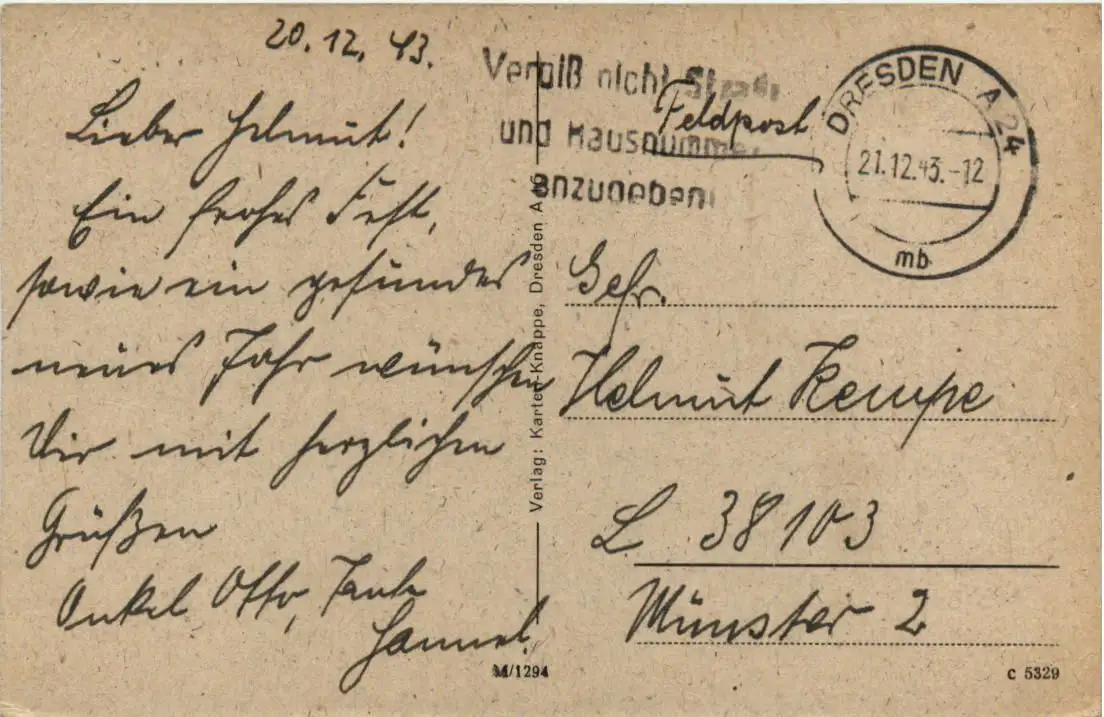 20.12.43.
Lieber Helmut!
Ein frohes Fest,
sowie ein gesundes
neues Jahr wünschen
Dir mit herzlichen
Grüßen
Onkel Otto, Tante
Hannel.
Vergiß nicht Straße
und Hausnummer
anzugeben
Feldpost
DRESDEN A 24
21.12.43.-12
mb
Gefr.
Helmut Kempe
L 38103
Münster 2
Verlag: Karten-Knappe, Dresden A 16
M/1294
C 5329